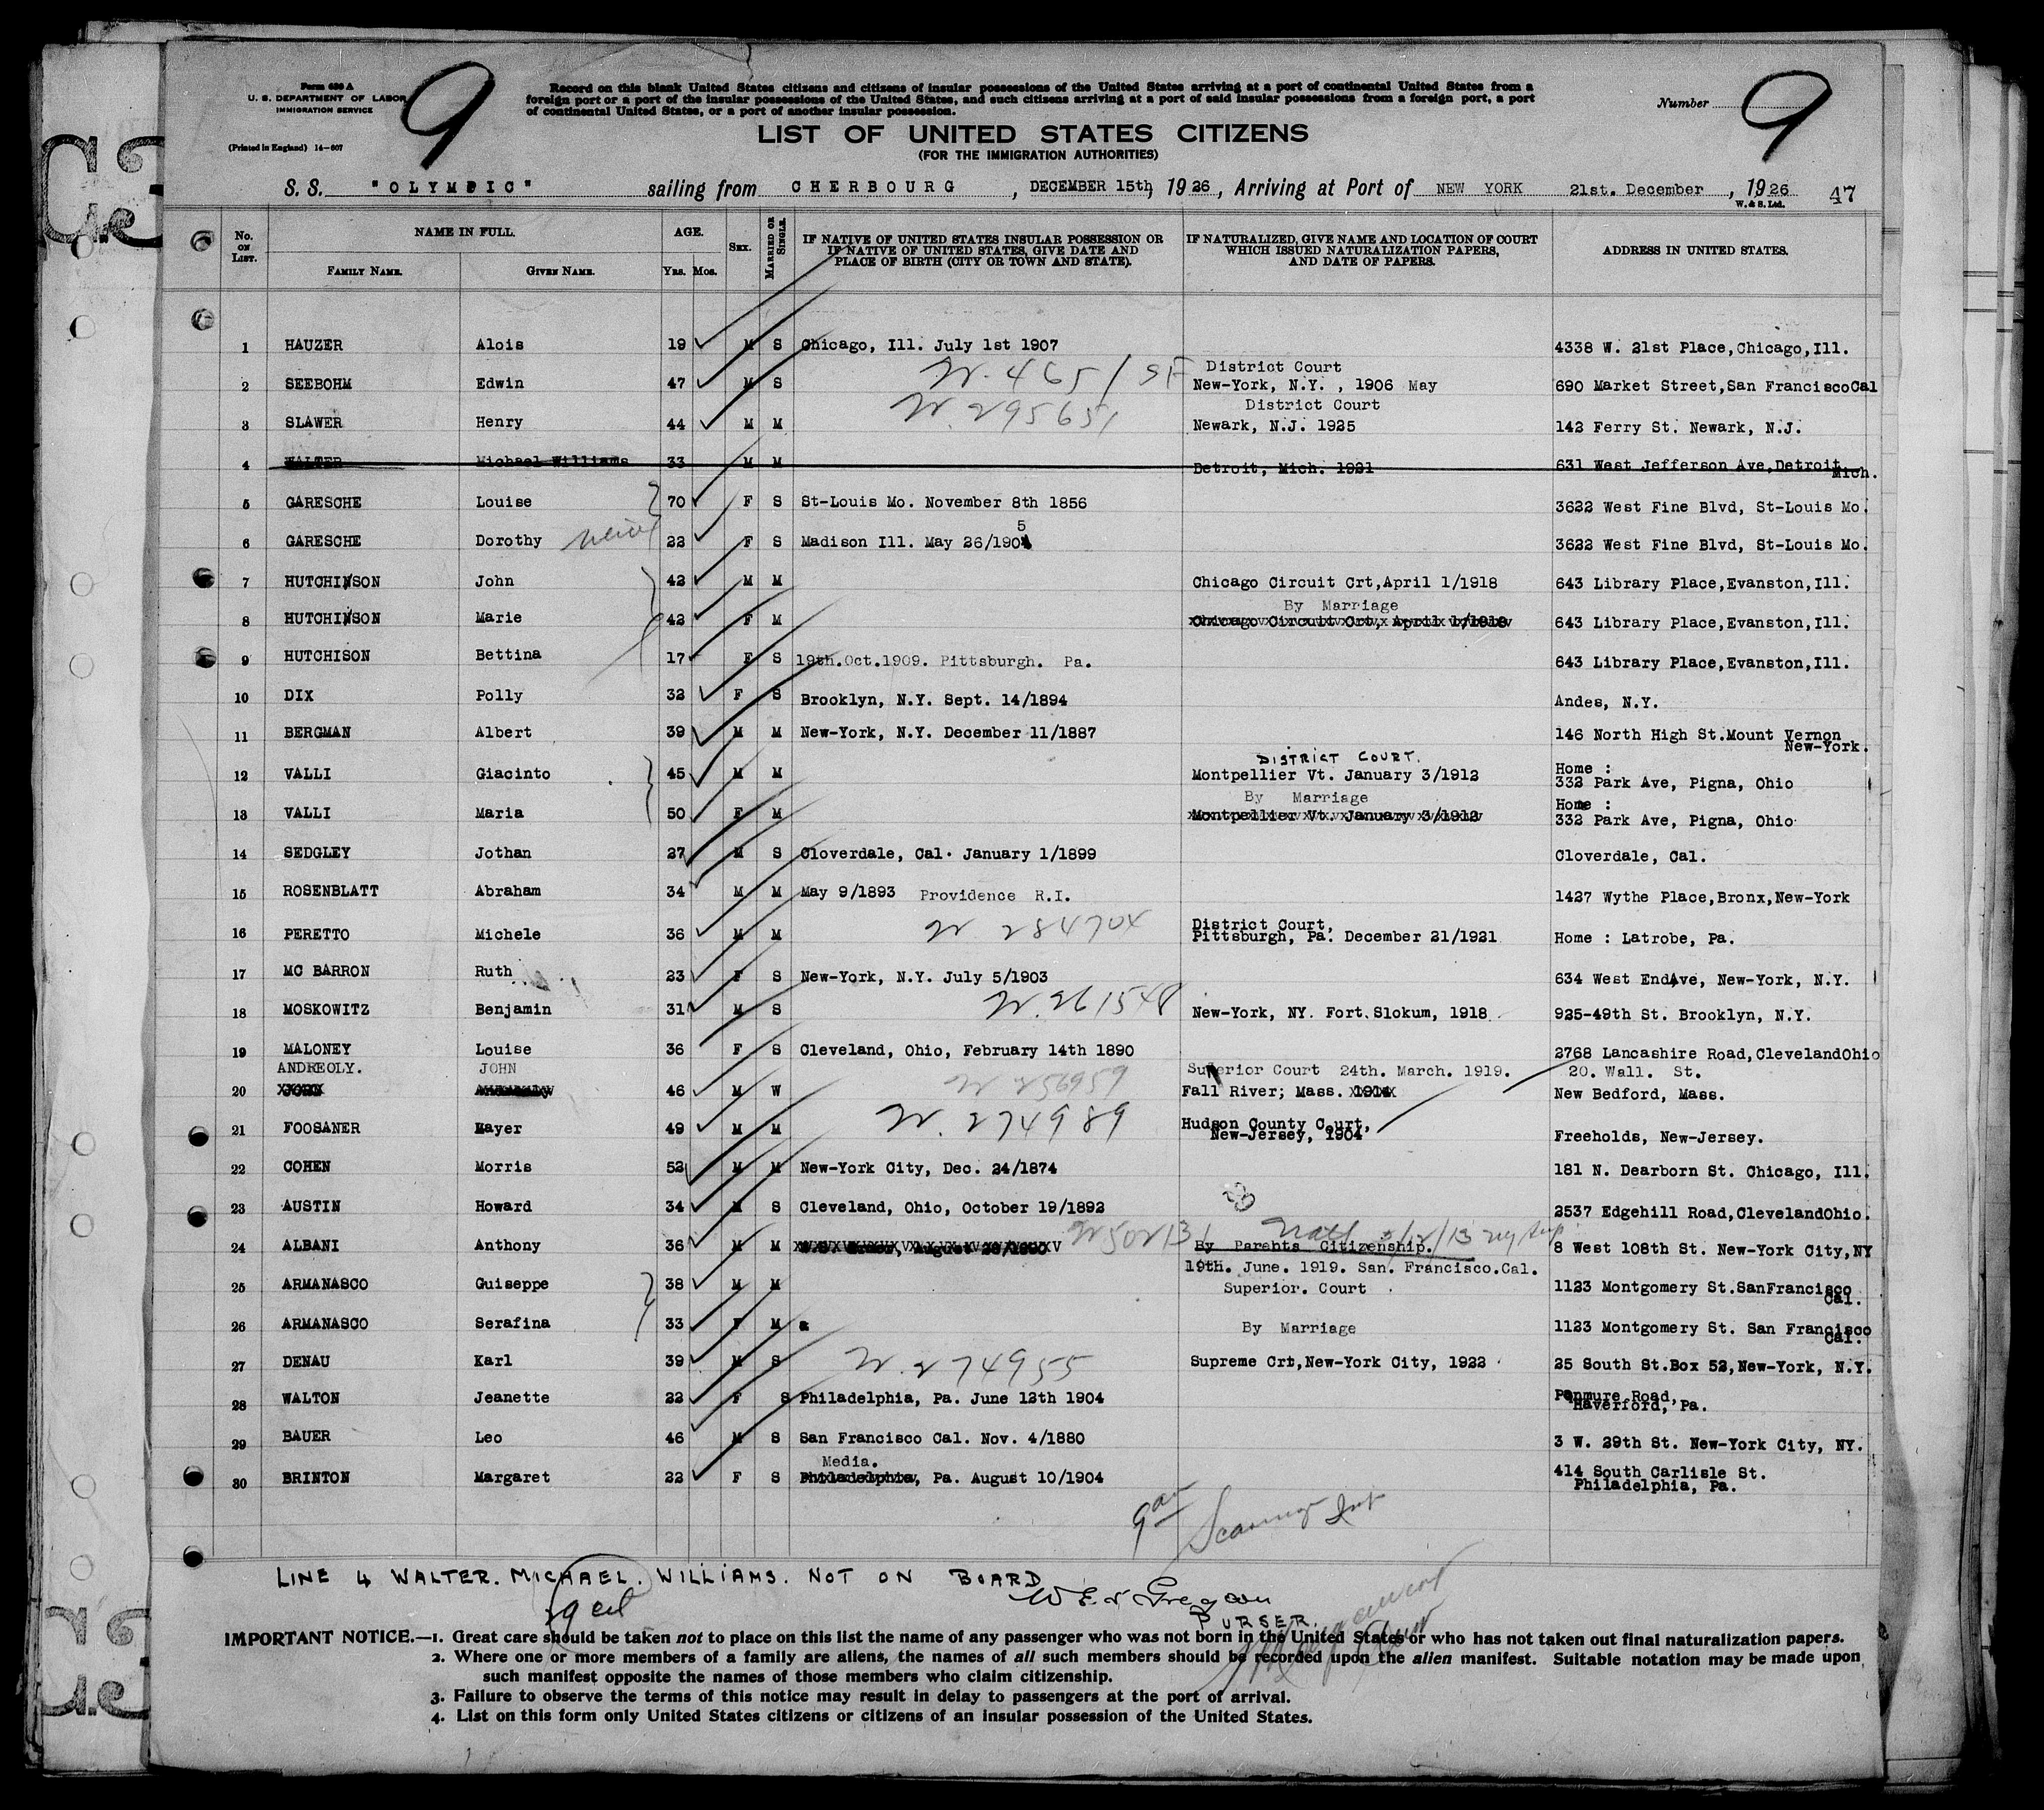 Form 630 A
U. S. DEPARTMENT OF LABOR
IMMIGRATION SERVICE
(Printed in England) 14—607
9
Record on this blank United States citizens and citizens of insular possessions of the United States arriving at a port of continental United States from a
foreign port or a port of the insular possessions of the United States, and such citizens arriving at a port of said insular possessions from a foreign port, a port
of continental United States, or a port of another insular possession.
Number 9
LIST OF UNITED STATES CITIZENS
(FOR THE IMMIGRATION AUTHORITIES)
S. S. "OLYMPIC" sailing from CHERBOURG, DECEMBER 15th, 1926, Arriving at Port of NEW YORK 21st. December, 1926
W. & S. Ltd.
47
No. ON LIST. NAME IN FULL. FAMILY NAME. GIVEN NAME. AGE. YRS. MOS. SEX. MARRIED OR SINGLE. IF NATIVE OF UNITED STATES INSULAR POSSESSION OR IF NATIVE OF UNITED STATES, GIVE DATE AND PLACE OF BIRTH (CITY OR TOWN AND STATE). IF NATURALIZED, GIVE NAME AND LOCATION OF COURT WHICH ISSUED NATURALIZATION PAPERS, AND DATE OF PAPERS. ADDRESS IN UNITED STATES.
1 HAUZER Alois 19 M S Chicago, Ill. July 1st 1907 4338 W. 21st Place,Chicago,Ill.
District Court
2 SEEBOHM Edwin 47 M S New-York, N.Y. , 1906 May 690 Market Street,San FranciscoCal
District Court
3 SLAWER Henry 44 M M 295651 Newark, N.J. 1925 142 Ferry St. Newark, N.J.
4 WALTER Michael Williams 33 M M Detroit, Mich. 1921 631 West Jefferson Ave,Detroit Mich.
5 GARESCHE Louise 70 F S St-Louis Mo. November 8th 1856 3622 West Fine Blvd, St-Louis Mo.
5
6 GARESCHE Dorothy 22 F S Madison Ill. May 26/1904 3622 West Fine Blvd, St-Louis Mo.
7 HUTCHINSON John 42 M M Chicago Circuit Crt,April 1/1918 643 Library Place,Evanston,Ill.
By Marriage
8 HUTCHINSON Marie 42 F M Chicago Circuit Crt, April 1/1918 643 Library Place,Evanston,Ill.
9 HUTCHISON Bettina 17 F S 19th.Oct.1909. Pittsburgh. Pa. 643 Library Place,Evanston,Ill.
10 DIX Polly 32 F S Brooklyn, N.Y. Sept. 14/1894 Andes, N.Y.
11 BERGMAN Albert 39 M M New-York, N.Y. December 11/1887 146 North High St.Mount Vernon New-York.
DISTRICT COURT.
12 VALLI Giacinto 45 M M Montpellier Vt. January 3/1912 Home : 332 Park Ave, Pigna, Ohio
By Marriage
13 VALLI Maria 50 F M Montpellier Vt. January 3/1912 Home : 332 Park Ave, Pigna, Ohio
14 SEDGLEY Jothan 27 M S Cloverdale, Cal. January 1/1899 Cloverdale, Cal.
15 ROSENBLATT Abraham 34 M M May 9/1893 Providence R.I. 1427 Wythe Place,Bronx,New-York
District Court,
16 PERETTO Michele 36 M M 284704 Pittsburgh, Pa. December 21/1921 Home : Latrobe, Pa.
17 MC BARRON Ruth 23 F S New-York, N.Y. July 5/1903 634 West EndAve, New-York, N.Y.
18 MOSKOWITZ Benjamin 31 M S 261548 New-York, NY. Fort.Slokum, 1918 925-49th St. Brooklyn, N.Y.
19 MALONEY Louise 36 F S Cleveland, Ohio, February 14th 1890 2768 Lancashire Road,ClevelandOhio
ANDREOLY. JOHN Superior Court 24th. March. 1919. 20. Wall. St.
20 46 M W 256959 Fall River; Mass. 1914 New Bedford, Mass.
21 FOOSANER Mayer 49 M M 274989 Hudson County Court, New-Jersey, 1904 Freeholds, New-Jersey.
22 COHEN Morris 52 M M New-York City, Dec. 24/1874 181 N. Dearborn St. Chicago, Ill.
23 AUSTIN Howard 34 M S Cleveland, Ohio, October 19/1892 2537 Edgehill Road,ClevelandOhio.
24 ALBANI Anthony 36 M M August 28/1890 By Parents Citizenship. 8 West 108th St. New-York City,NY
19th. June. 1919. San. Francisco.Cal.
25 ARMANASCO Guiseppe 38 M M Superior. Court 1123 Montgomery St.SanFrancisco Cal.
26 ARMANASCO Serafina 33 F M By Marriage 1123 Montgomery St. San Francisco Cal.
27 DENAU Karl 39 M S 274955 Supreme Crt,New-York City, 1922 25 South St.Box 52,New-York, N.Y.
28 WALTON Jeanette 22 F S Philadelphia, Pa. June 12th 1904 Penmure Road, Haverford, Pa.
29 BAUER Leo 46 M S San Francisco Cal. Nov. 4/1880 3 W. 29th St. New-York City, NY.
Media.
30 BRINTON Margaret 22 F S Philadelphia, Pa. August 10/1904 414 South Carlisle St. Philadelphia, Pa.
LINE 4 WALTER. MICHAEL. WILLIAMS. NOT ON BOARD
PURSER.
IMPORTANT NOTICE.—1. Great care should be taken not to place on this list the name of any passenger who was not born in the United States or who has not taken out final naturalization papers.
2. Where one or more members of a family are aliens, the names of all such members should be recorded upon the alien manifest. Suitable notation may be made upon
such manifest opposite the names of those members who claim citizenship.
3. Failure to observe the terms of this notice may result in delay to passengers at the port of arrival.
4. List on this form only United States citizens or citizens of an insular possession of the United States.